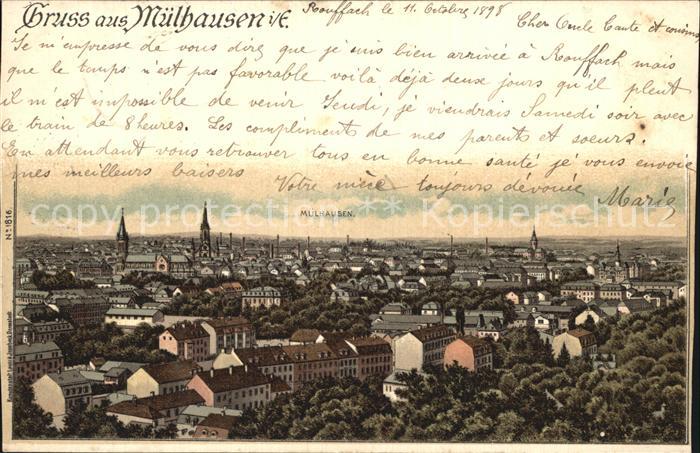 Gruss aus Mülhausen i/E.
Rouffach le 11. Octobre 1898
Cher Oncle Tante et cousins
Je m'empresse de vous dire que je suis bien arrivée à Rouffach mais
que le temps n'est pas favorable voilà déjà deux jours qu'il pleut
il m'est impossible de venir Jeudi, je viendrais Samedi soir avec
le train de 8 heures. Les compliments de mes parents et soeurs.
En attendant vous retrouver tous en bonne santé je vous envoie
mes meilleurs baisers
Votre nièce toujours dévouée
Marie
copyright protection Kopierschutz
MÜLHAUSEN.
No. 1816.